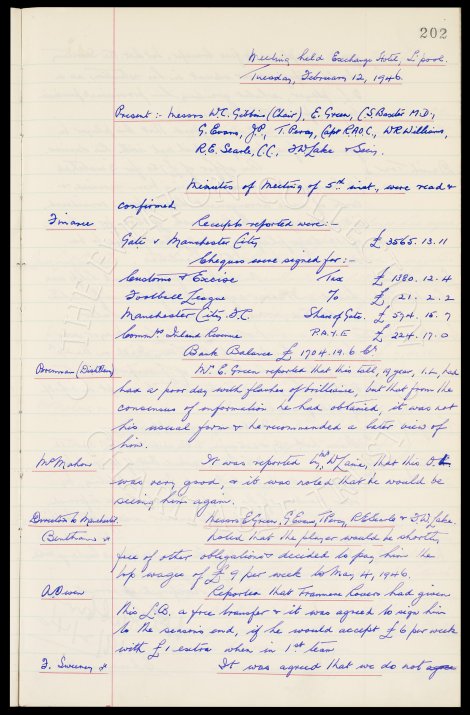 202
Meeting held Exchange Hotel, L'pool.
Tuesday, February 12, 1946.
Present :- Messrs W.C. Gibbins (Chair), E. Green, C.S. Baxter M.D.,
G. Evans, J.P., T. Percy, Capt. R.A.O.C., W.R. Williams,
R.E. Searle, C.C., F.W. Lake & Secy.
Minutes of Meeting of 5th inst., were read &
confirmed
Finance
Receipts reported were:-
Gate v Manchester City £ 3565.13.11
Cheques were signed for:-
Customs & Excise Tax £ 1380.12.4
Football League % £ 21.2.2
Manchester City F.C. Share of Gate. £ 574.15.7
Commrs Inland Revenue P.A.Y.E £ 224.17.0
Bank Balance £ 1704.19.6 Cr
Brennan (Distillery)
Mr E. Green reported that this tall, 19 year, I.L, had
had a poor day with flashes of brilliance, but that from the
consensus of information he had obtained, it was not
his usual form & he recommended a later view of
him.
McMahon
It was reported by Mr Laing, that this O.L
was very good, & it was noted that he would be
seeing him again.
Directors to Manchester.
Messrs E Green, G Evans, T Percy, R.E. Searle & F.W. Lake.
Bentham
Noted that the player would be shortly
free of other obligations & decided to pay him the
top wages of £9 per week to May 4, 1946.
A. Owen
Reported that Tranmere Rovers had given
this L.B. a free transfer & it was agreed to sign him
to the seasons end, if he would accept £6 per week
with £1 extra when in 1st team
F. Sweeney
It was agreed that we do not agree